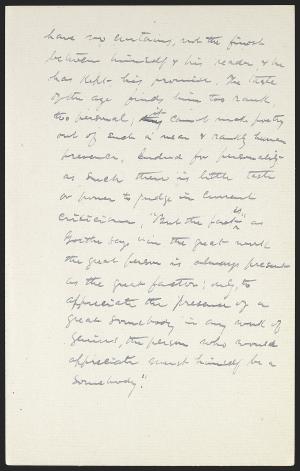 have no curtains, not the finest
between himself & his reader, & he
has kept his promise. The taste
of the age finds him too rank,
too personal; it cannot make poetry
out of such a near & rankly human
presence. Indeed for personality
as such there is little taste
or power to judge in current
criticism, "But the fact is" as
Goethe says "in the great work
the great person is always present
as the great factor; only to
appreciate the presence of a
great somebody in any work of
genius, the person who would
appreciate must himself be a
somebody."